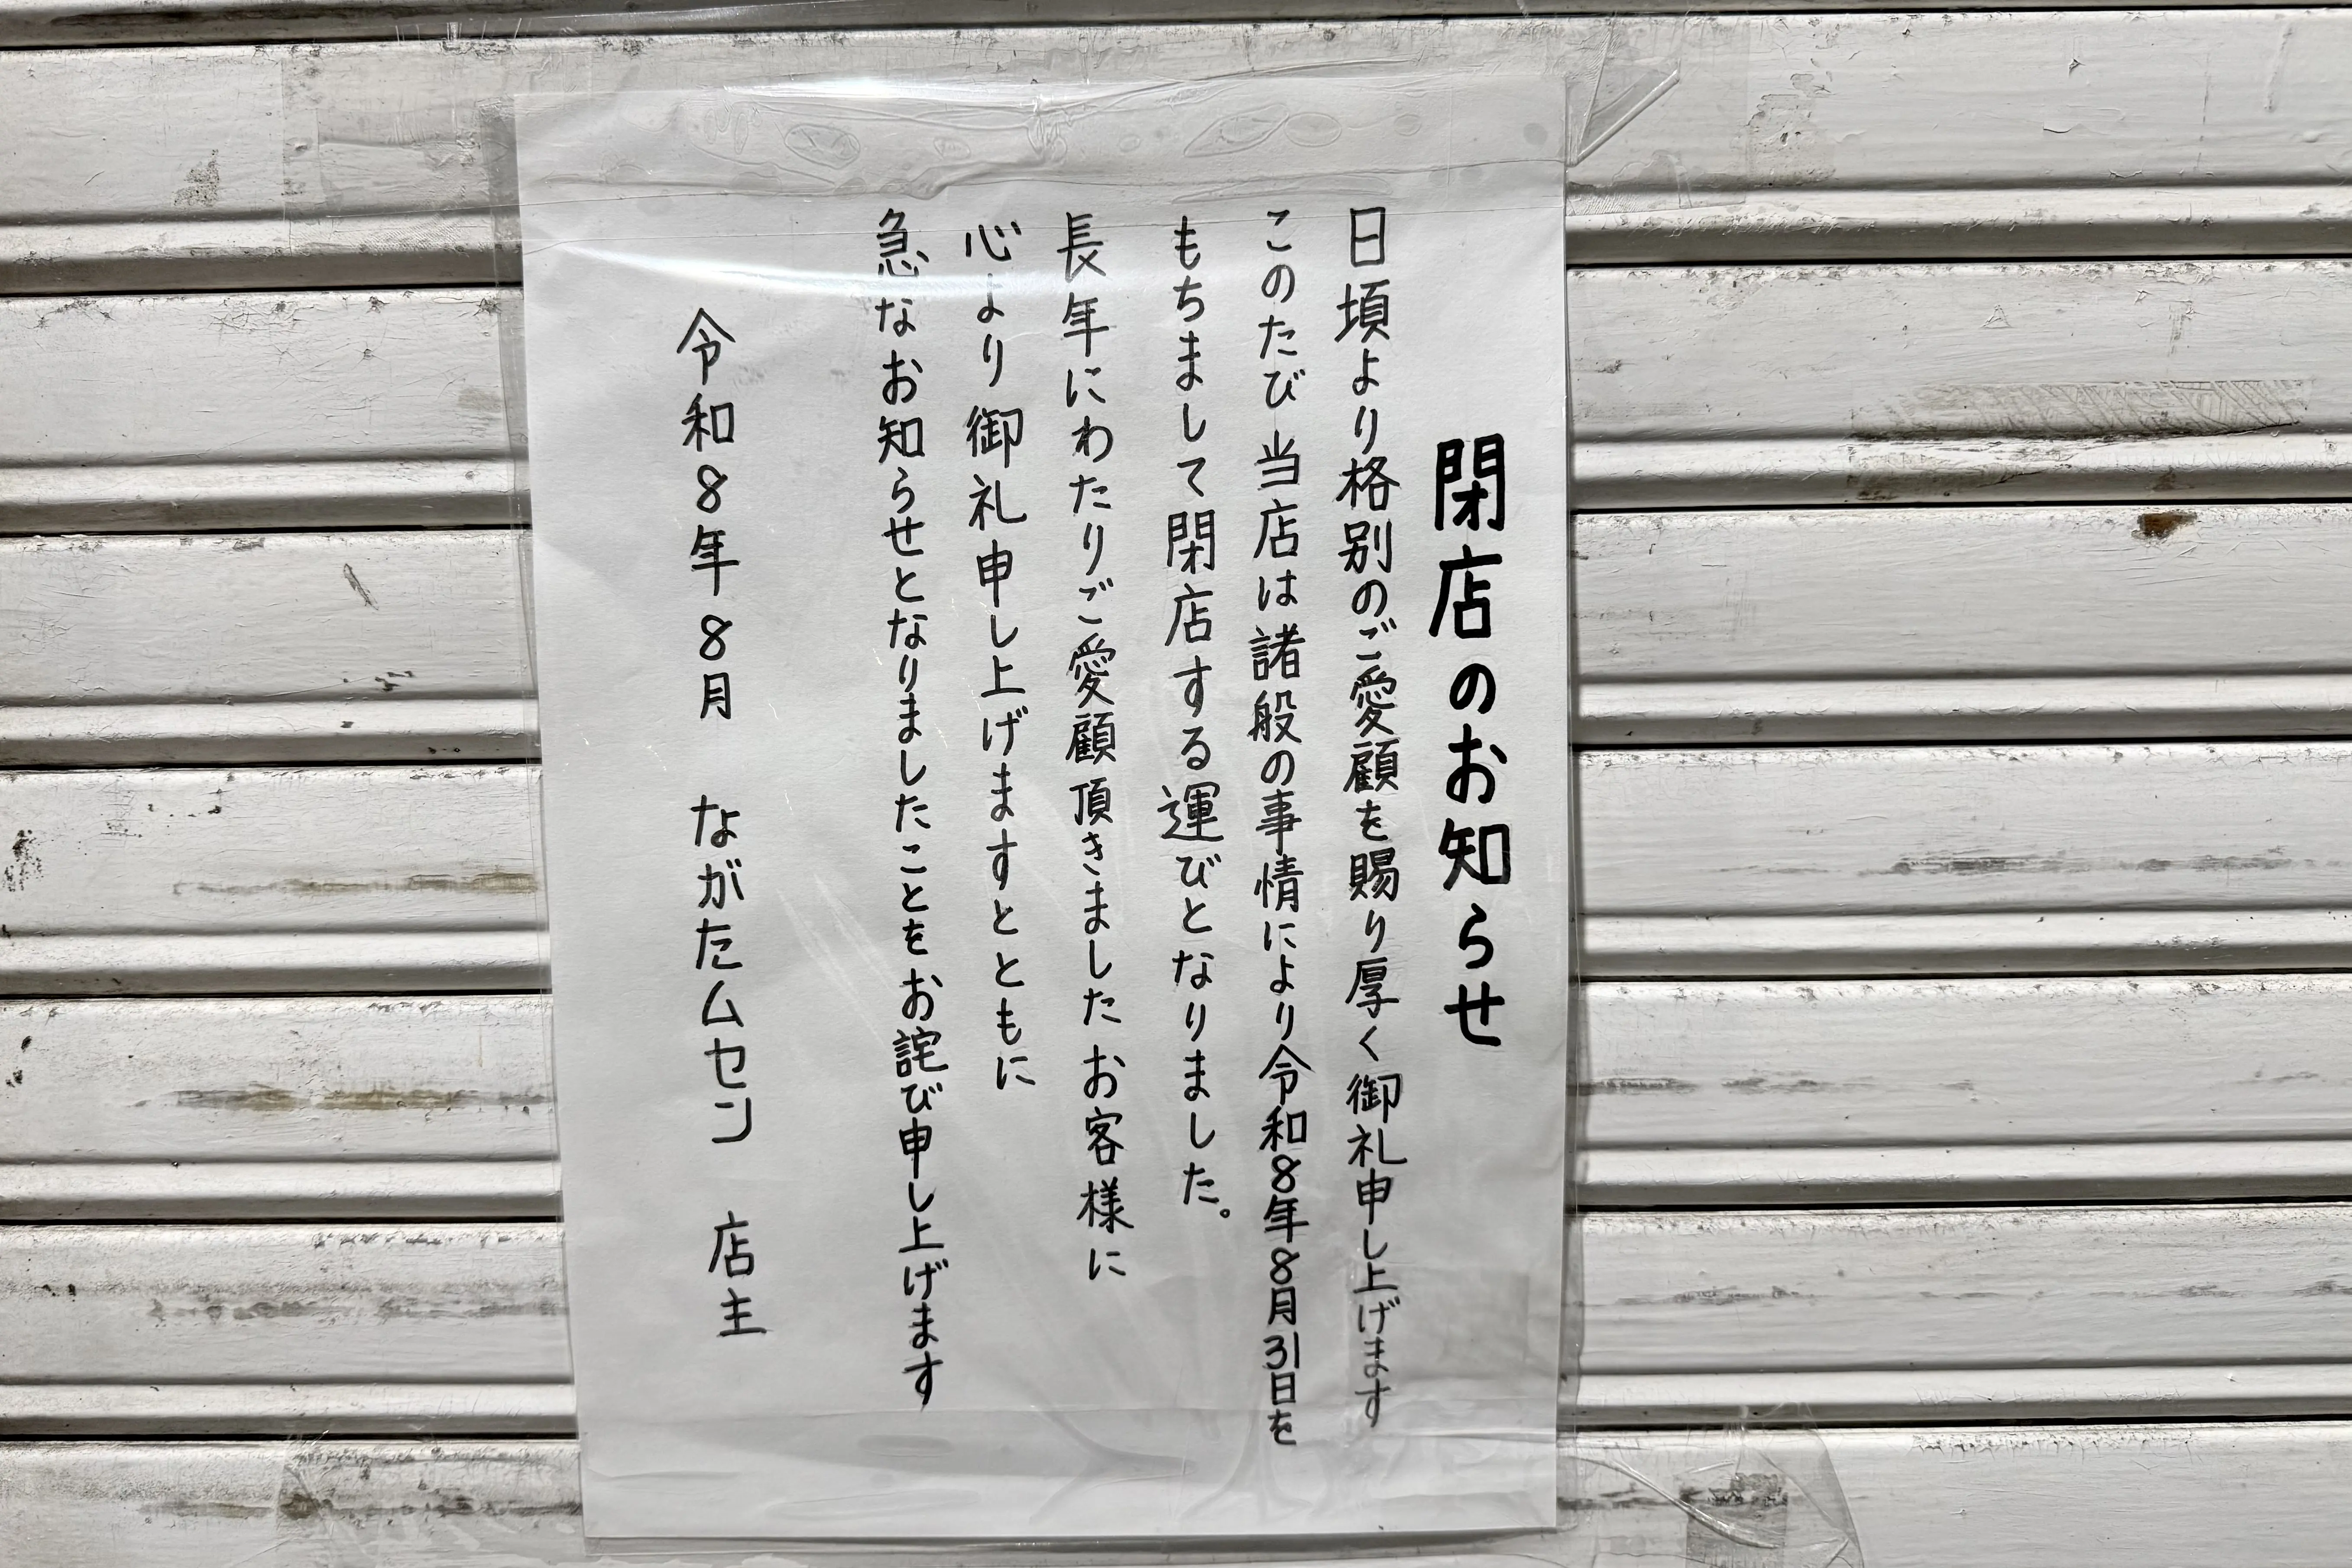 閉店のお知らせ
日頃より格別のご愛顧を賜り厚く御礼申し上げます
このたび当店は諸般の事情により令和8年8月31日を
もちまして閉店する運びとなりました。
長年にわたりご愛顧頂きましたお客様に
心より御礼申し上げますとともに
急なお知らせとなりましたことをお詫び申し上げます
令和8年8月 ながたムセン 店主